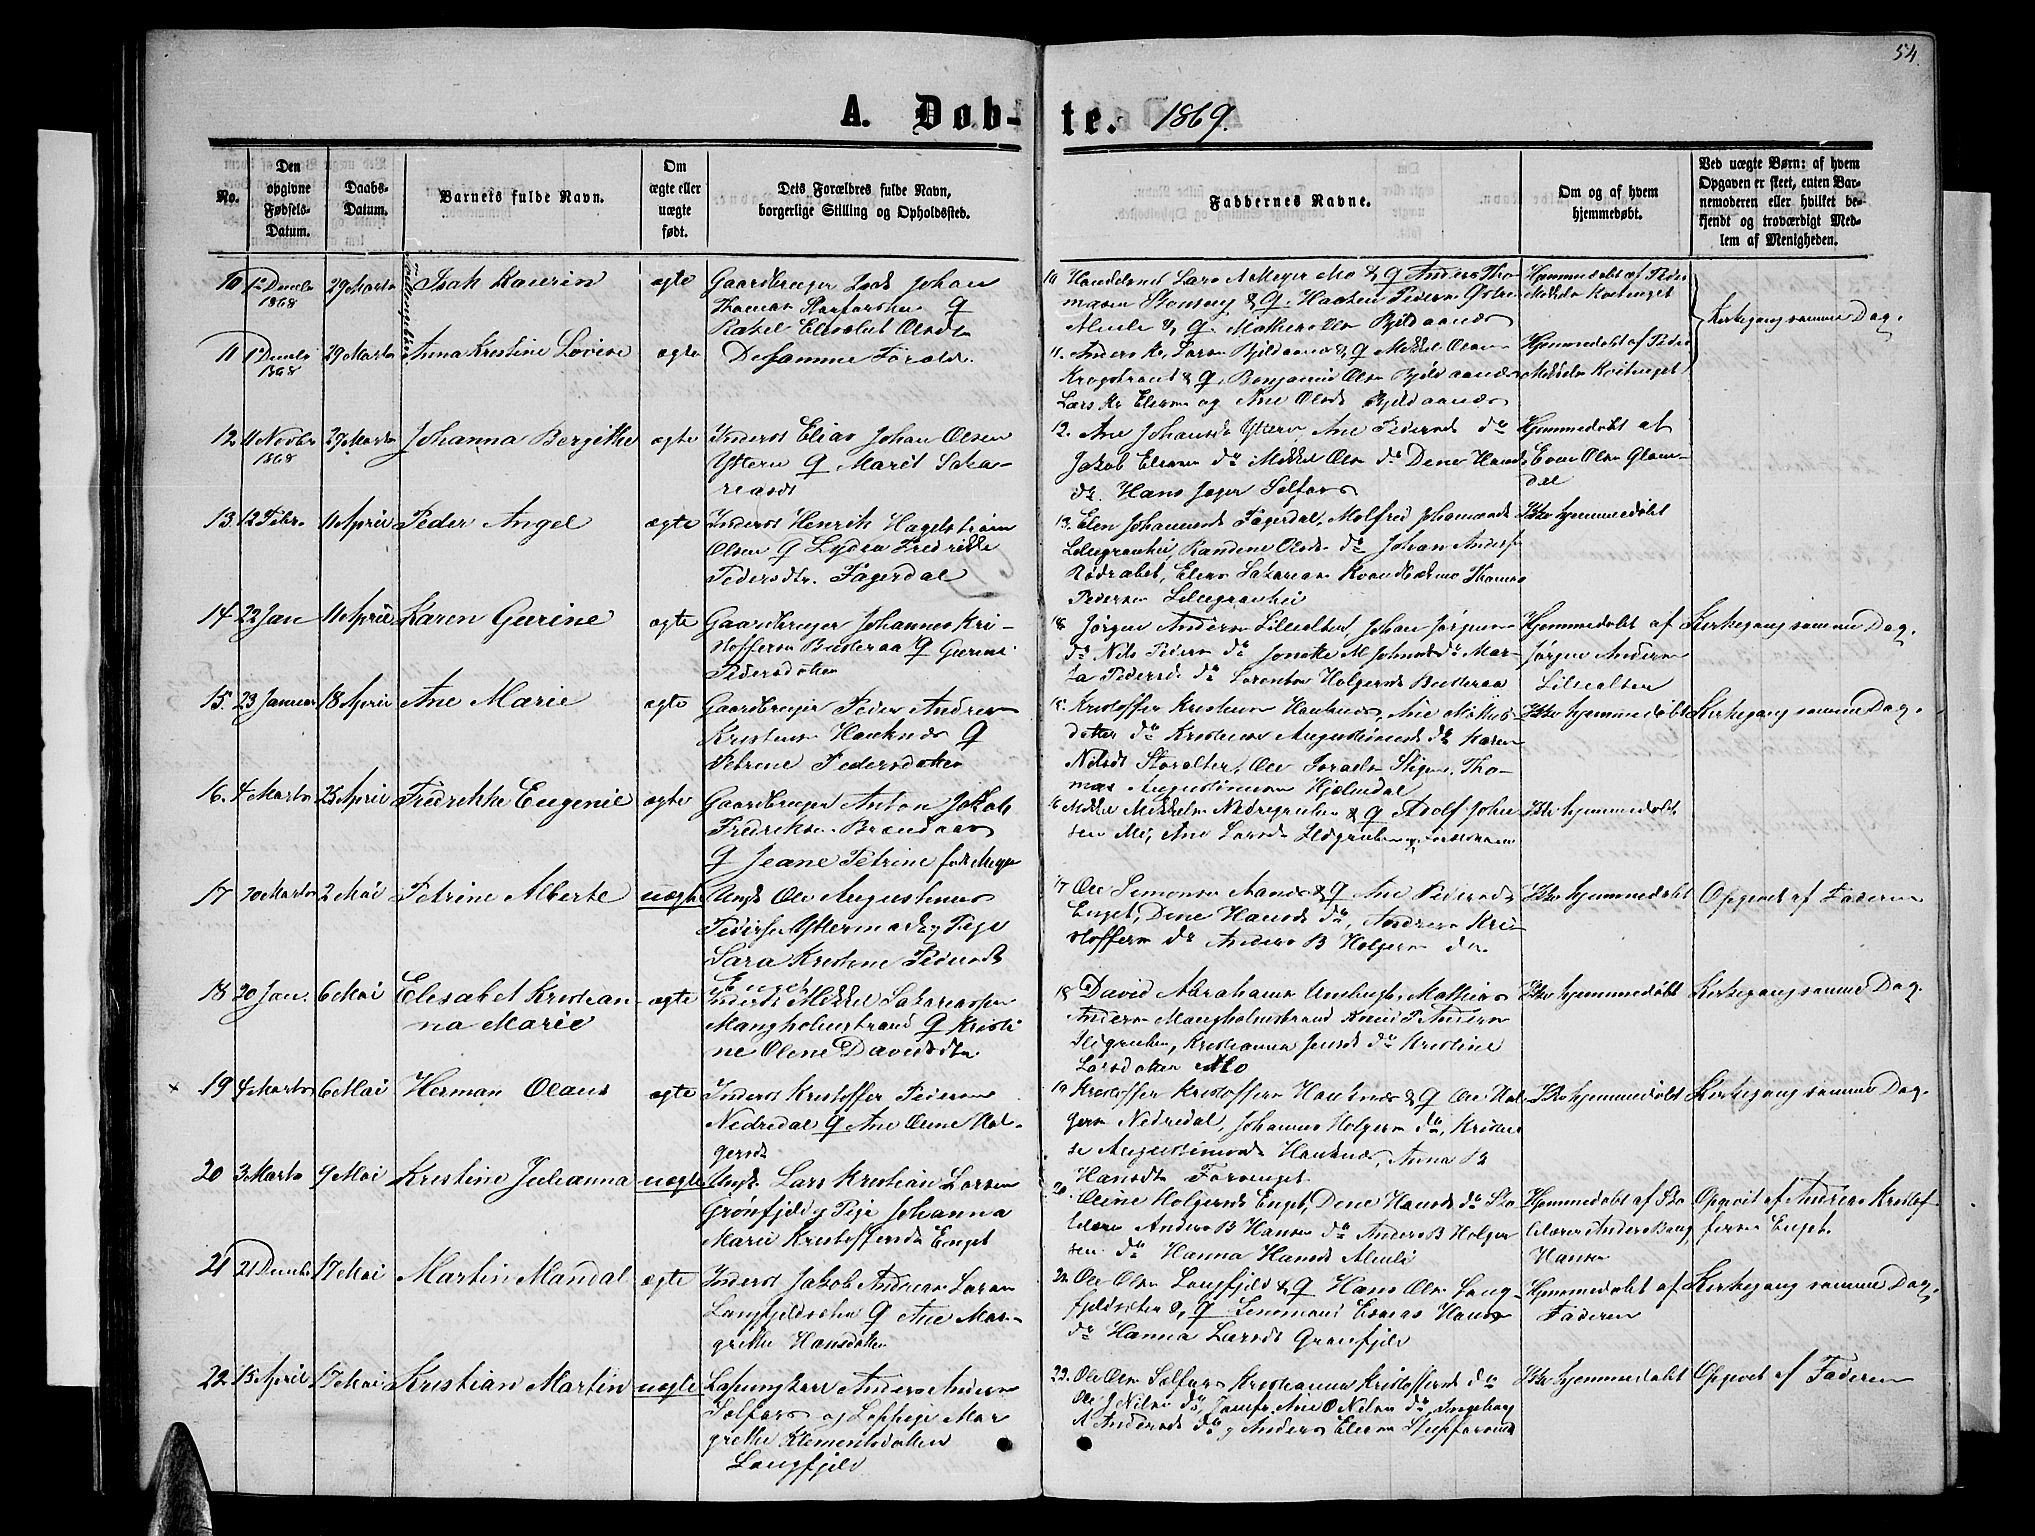 54.
A. Døb-te. 1869.
No.
Den opgivne Fødsels-Datum.
Daabs-Datum.
Barnets fulde Navn.
Om ægte eller uægte født.
Dets Forældres fulde Navn, borgerlige Stilling og Opholdssted.
Faddernes Navne.
Om og af hvem hjemmedøbt.
Ved uægte Børn: af hvem Opgaven er skeet, enten Barnemoderen eller hvilket bekjendt og troværdigt Medlem af Menigheden.
10 1 Decmbr 1868 29 Marts Isak Kaurin ægte Gaardbruger Isak Johan
Thomas &
Rakel Elisabet Olsdtr
10 Lars A Meyer Mo & Anders Tho-
masen & Haaken Pedersen
Hjemmedøbt af Peder
Kirkegang samme Dag.
11 1 Decmbr 1868 29 Marts Anna Kristine Lovise ægte De samme Foræld.
11. Anders Kr. Larsen Bjeldaanes & Mikkel Olsen
Krogstrand & Benjamin Olsen Bjeldaanes
Lars Kr Elersen og Ane Olsdt Bjeldaanes
Hjemmedøbt af Peder
12. 11 Novbr 1868 29 Marts Johanna Bergithe ægte Inderst Elias Johan Olsen
Ytteren & Marit Saka-
riasdt
12. Ane Johansdt Ytteren, Ane Pedersdt do
Jakob Elersen do Mikkel Olsen do Dene Hansdt
do. Hans Jæger Selfors
Hjemmedøbt af
Even Olsen Glom-
dal
13. 12 Febr. 11 April Peder Angel ægte Inderst Henrik Hagelstrøm
Olsen & Lydia Fredrikke
Pedersdtr. Fagerdal
13. Elen Johannesdt Fagerdal, Molfred Johannesdt
Lillegranhei, Randine Olsdt do Johan Anders
Elers Sakarias Thomas
Pedersen Lillegranhei
Ikke hjemmedøbt
14 22 Jan 11 April Karen Gurine ægte Gaardbruger Johannes Kri-
stoffersen Busteraa & Gurine
Pedersdatter
Jørgen Andersen Lillealteren Johan Jørgensen
do Nils Pedersen do
Pedersd. do Holgersdt Busteraa
Hjemmedøbt af
Jørgen Andersen
Lillealteren
Kirkegang samme Dag.
15. 23 Januar 18 April Ane Marie ægte Gaardbruger Peder Andreas
Kristensen Hauknes &
Petrine Pedersdatter
15. Kristoffer Kristensen Hauknes, Ane Mathis-
datter do Kristense Augustinusdt do Karen
Nilsdt Storalteren, Ole Israelsen Stigen, Tho-
mas Augustinusen Hjelmedal
Ikke hjemmedøbt
Kirkegang samme Dag.
16. 4 Marts 25 April Fredrikke Eugenie ægte Gaardbruger Anton Jakob
Fredriksen Brændaas
& Jeane Petrine født Meyer
16 Mikkel Mikkelsen Nedregruben & Adolf Johan-
sen Mo, Ane Larsdt
Ikke hjemmedøbt
17 20 Marts 2 Mai Petrine Alberte uægte Ungk Ole Augustinus
Peders Yttermark og Pige
Sara Kristine Pedersdt
Enget
17 Ole Simonsen Aanes & Ane Pedersdt
Enget, Dene Hansdt do, Andreas Kri-
stoffersen do Anders B Holgersen do
Ikke hjemmedøbt
Opgivet af Faderen
18 20 Jan. 6 Mai Elisabet Kristian-
na Marie ægte Inderst Mikkel Sakariassen
Mangholmstrand & Kristi-
ne Olene Davidsdtr
18 David Abrahamsen Umbugt, Mathias
Andersen Mangholmstrand Knud P Andersen
Kristianna Jensdt do Kristine
Larsdatter Mo
Ikke hjemmedøbt
Kirkegang samme Dag.
x 19 4 Marts 6 Mai Herman Olaus ægte Inderst Kristoffer Pedersen
Nedredal & Ane Oline Hol-
gersdt
19 Kristoffer Kristoffersen Hauknes & Ole Hol-
gersen Nedredal, Johannes Holgersen do, Kristen-
se Augustinusdt Hauknes, Anna B
Hansdt
Ikke hjemmedøbt
Kirkegang samme Dag.
20 3 Marts 9 Mai Kristine Julianna uægte Ungk. Lars Kristian Larsen
Grønfjeld og Pige Johanna
Marie Kristoffersdt Enget
20. Oline Holgersdt Enget, Dene Hansdt do Sko-
lelærer Anders B Hansen do Anders B Holger
sen do Hanna Hansdt Alnli
Hjemmedøbt af Sko
lelærer Anders Bang
Hansen
Opgivet af Andreas Kristof-
fersen Enget.
21 21 Decmbr 17 Mai Martin Mandal ægte Inderst Jakob Andreas Larsen
Langfjeldsæter & Ane Mar-
grethe Hansdatter
Ole Olsen Langfjeld & Hans Olsen Lang-
fjeldsæter & Esaias Hansen
do Hanna Larsdt Grønfjeld
Hjemmedøbt af
Faderen
Kirkegang samme Dag.
22. 15 April 17 Mai Kristian Martin uægte Lapungkarl Anders Andersen
Selfors og Lappige Mar
grethe Klementsdatter
Langfjeld
22. Ole Olsen Selfors Kristianna Kristoffersdt do
Ole J Nilsen do, Jomfr. Ane O Nilsen do, Ingeborg
A Andersdt do og Anders Elersen
Ikke hjemmedøbt
Opgivet af Faderen